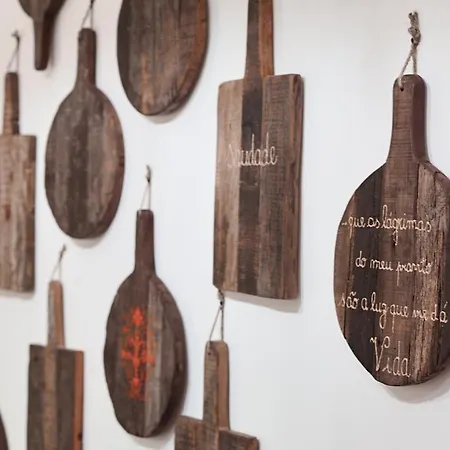 saudade
...que as lágrimas
do meu pranto
são a luz que me dá
Vida